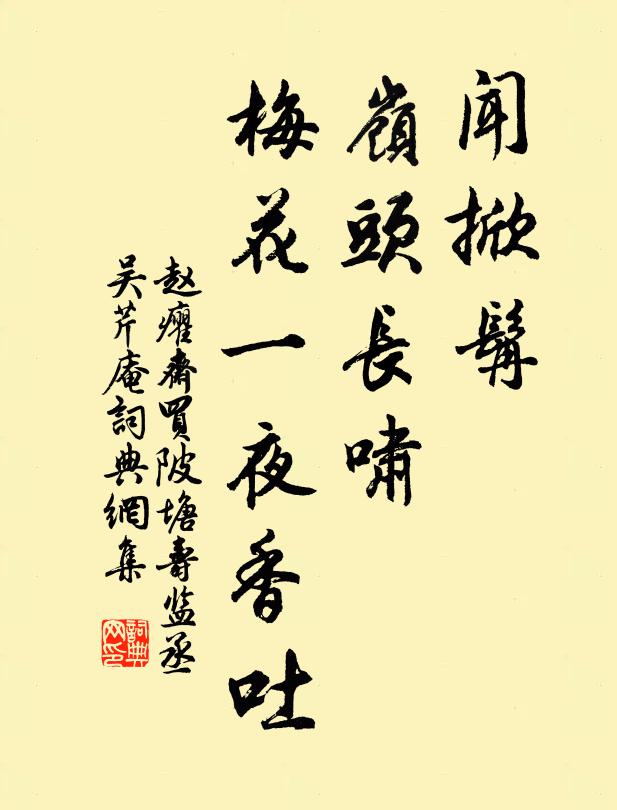 聞掀髯
嶺頭長嘯
梅花一夜香吐
赵癯齋買陂塘壽监丞
吴芹庵詞典網集
詞典网印